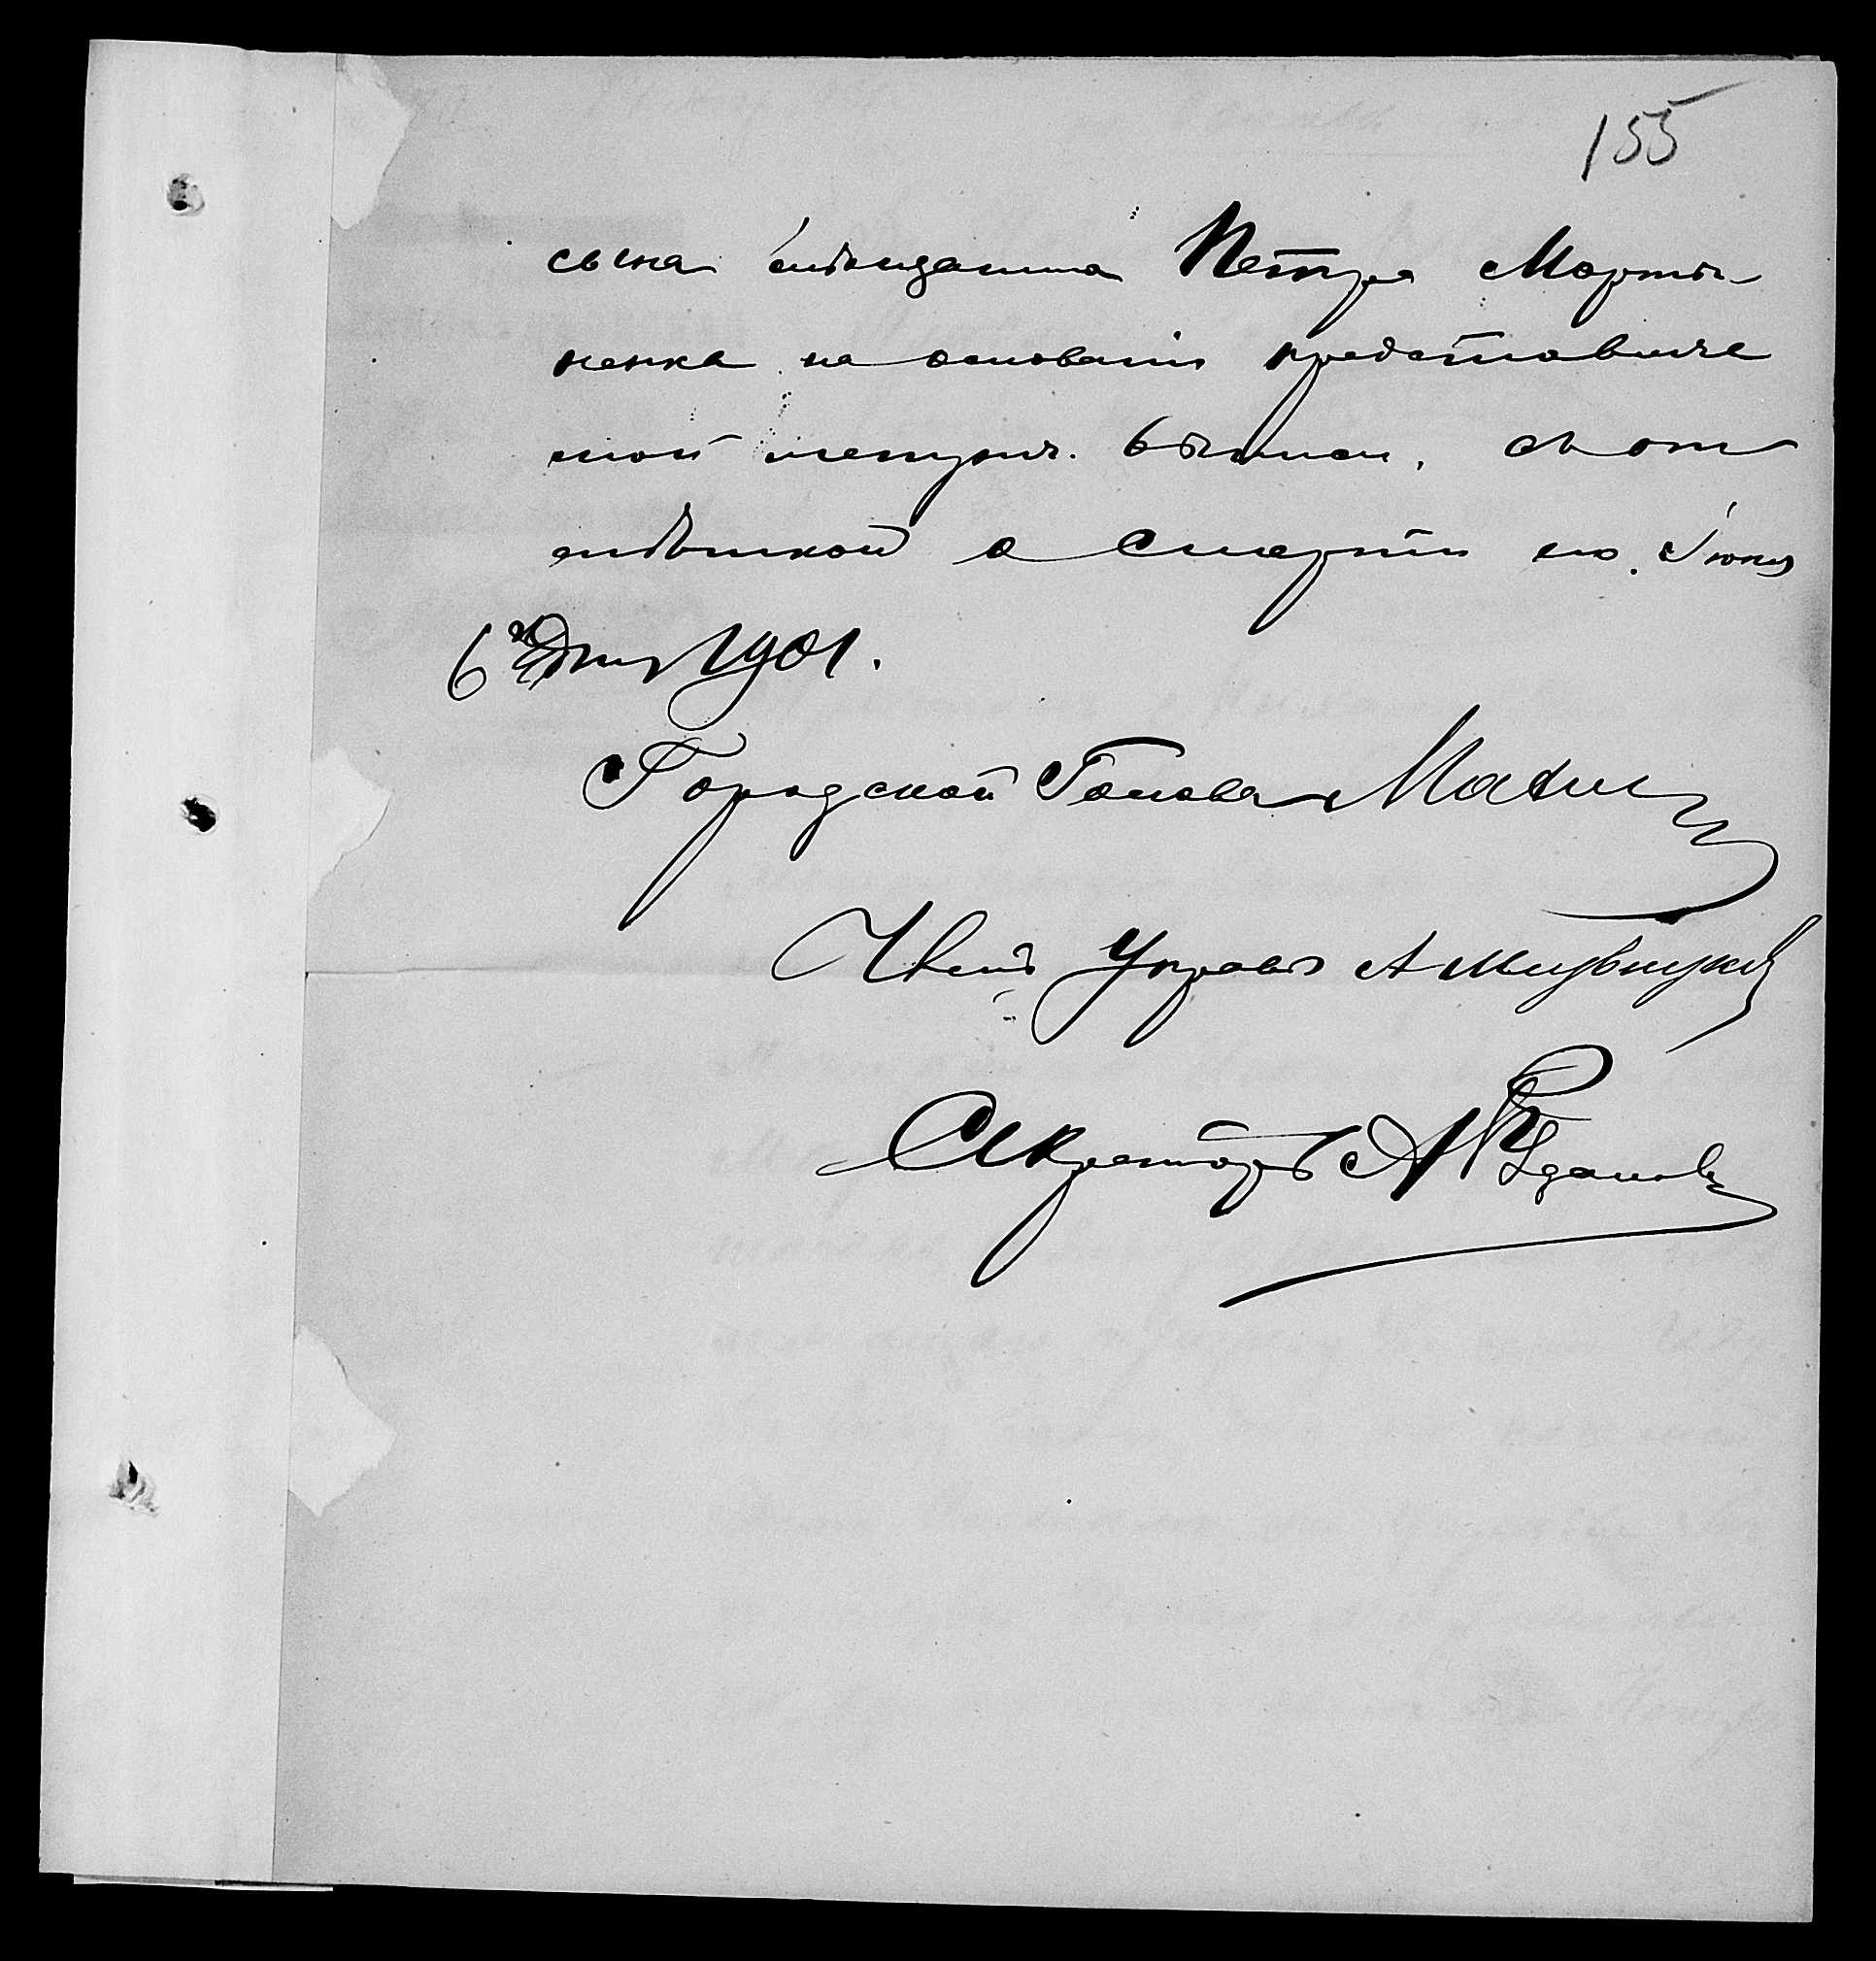 155
сына мѣщанина Петра Марты
ненка на основаніи представлен
ной метрич. выписи, съ от
мѣткой о смерти его. Іюня
6 дня 1901.
Городской Голова
Членъ Управы А
Секретарь А